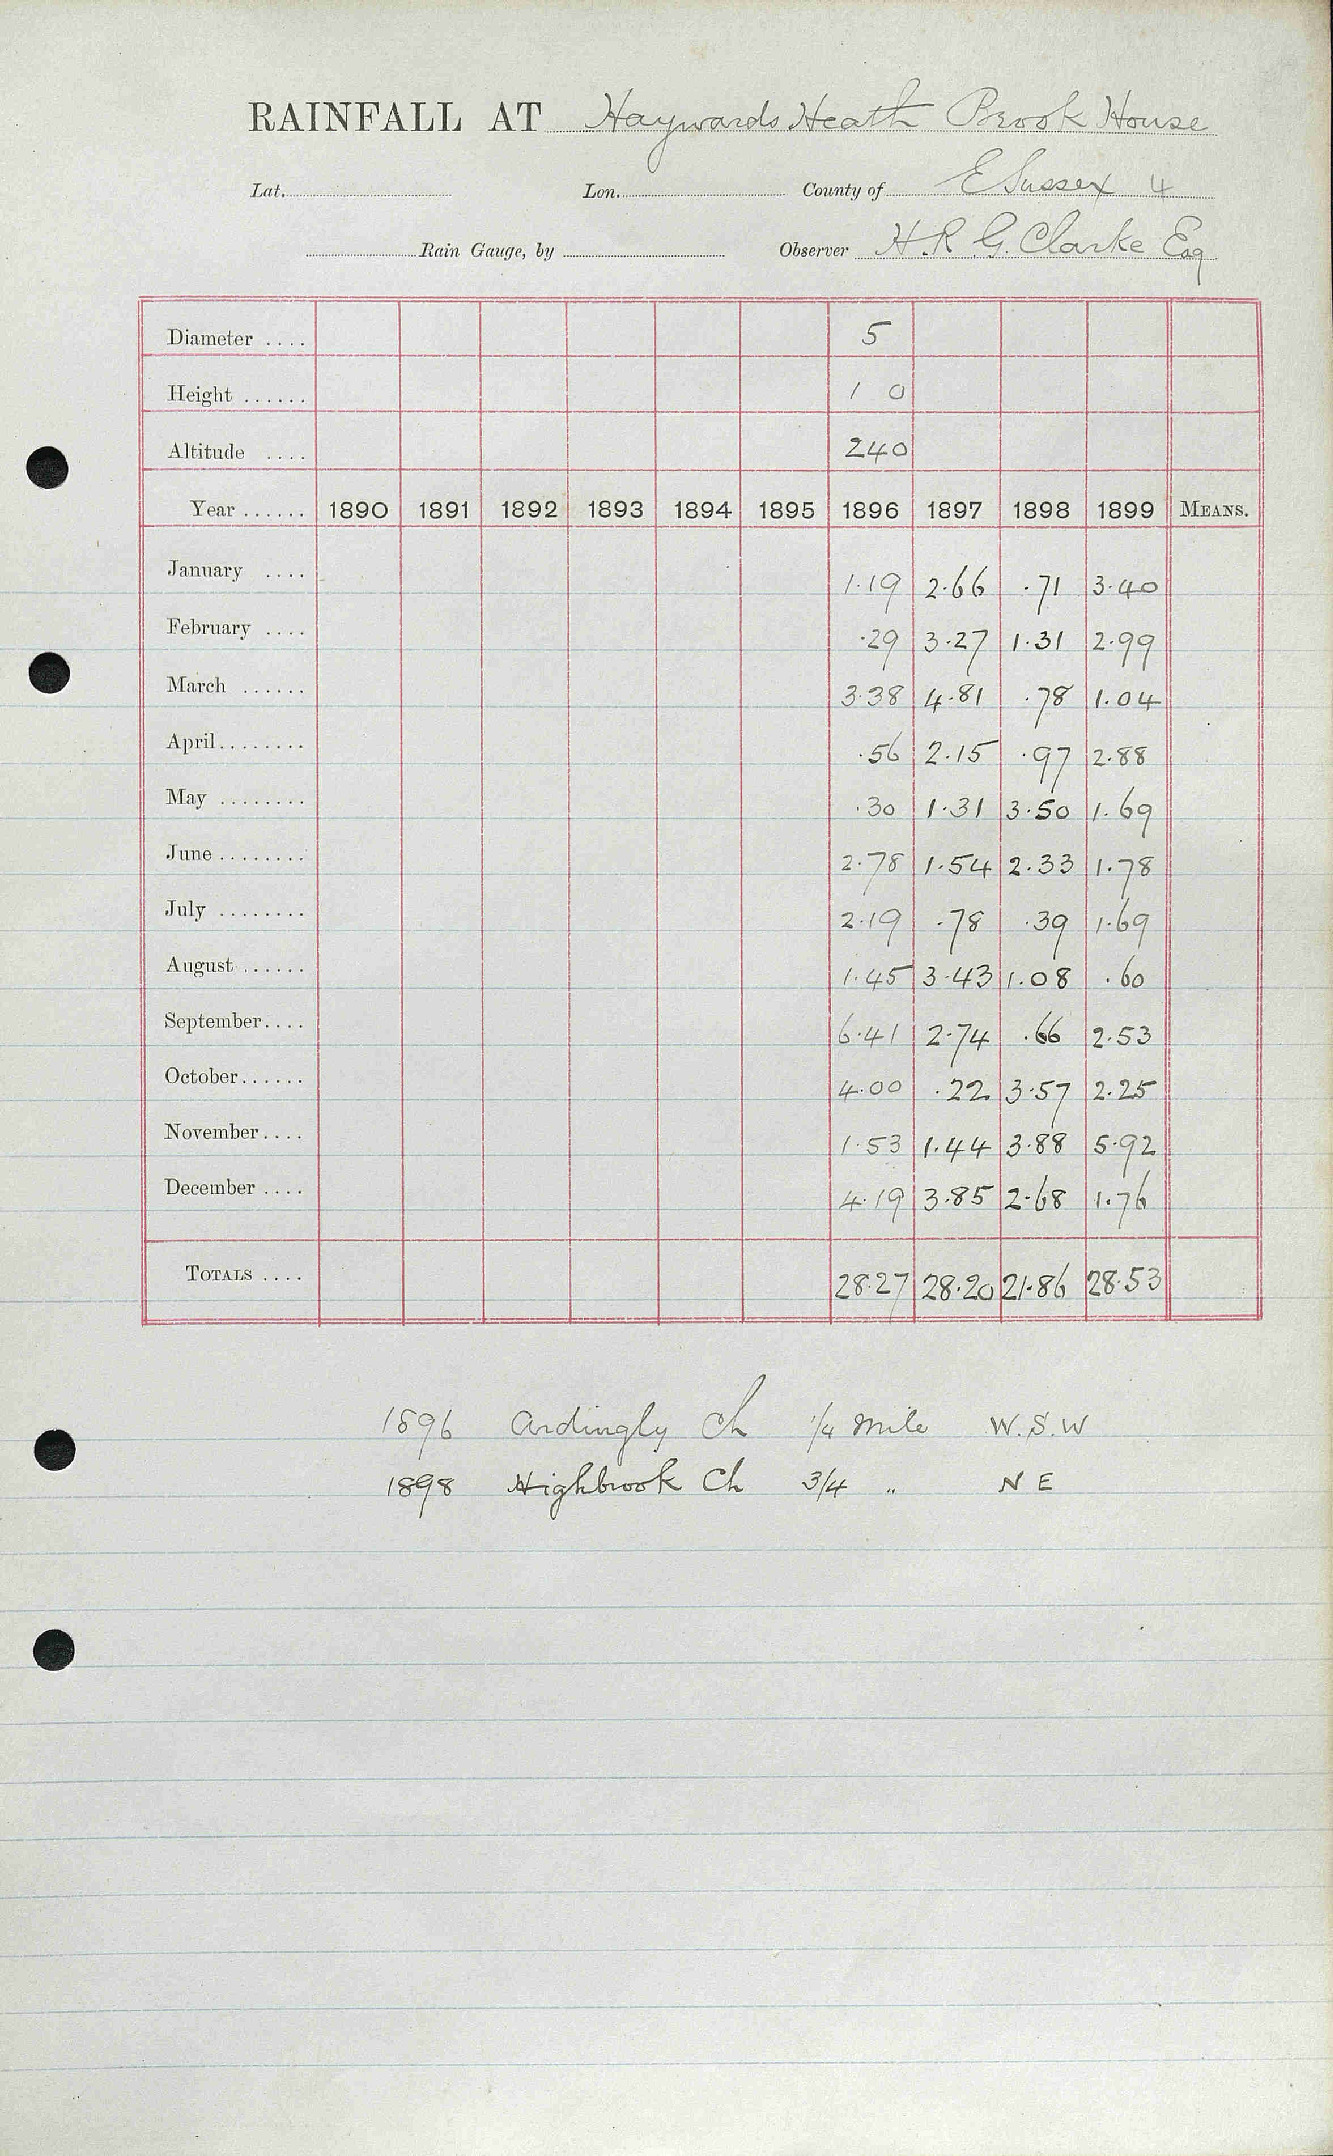 RAINFALL AT Haywards Heath Brook House
Lat. Lon. County of E Sussex 4
Rain Gauge, by Observer H. R. G. Clarke Esq
Diameter .... 5
Height ...... 1 0
Altitude .... 240
Year ...... 1890 1891 1892 1893 1894 1895 1896 1897 1898 1899 MEANS.
January .... 1.19 2.66 .71 3.40
February .... .29 3.27 1.31 2.99
March ...... 3.38 4.81 .78 1.04
April........ .56 2.15 .97 2.88
May ........ .30 1.31 3.50 1.69
June ........ 2.78 1.54 2.33 1.78
July ........ 2.19 .78 .39 1.69
August ...... 1.45 3.43 1.08 .60
September.... 6.41 2.74 .66 2.53
October...... 4.00 .22 3.57 2.25
November.... 1.53 1.44 3.88 5.92
December .... 4.19 3.85 2.68 1.76
TOTALS .... 28.27 28.20 21.86 28.53
1896 Ardingly Ch 1/4 mile W.S.W
1898 Highbrook Ch 3/4 " N E